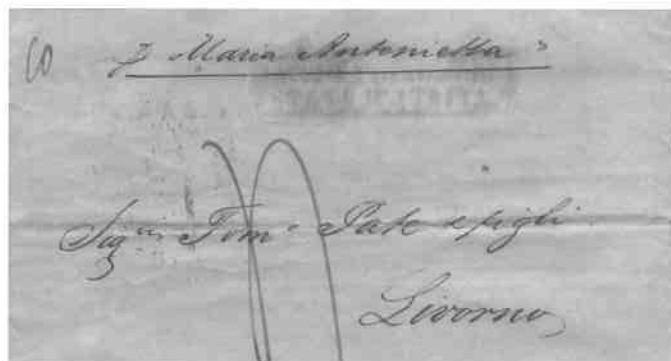 60
p Maria Antonietta
Sig.ri Tom.o Pate e figli
Livorno